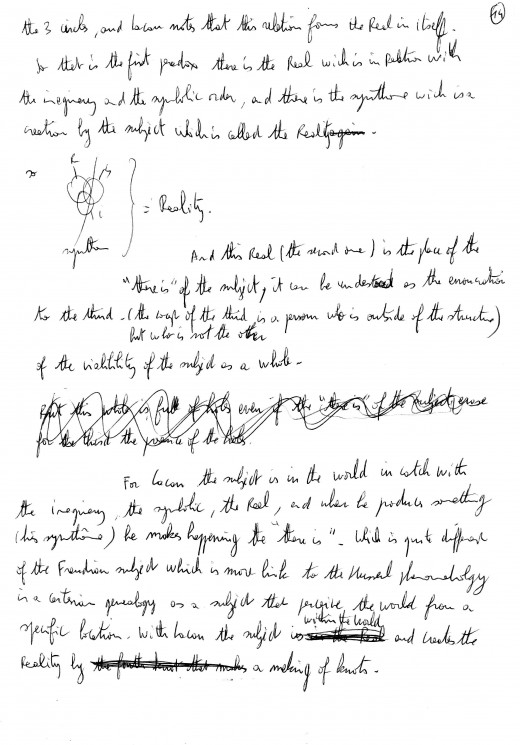 14
the 3 circles, and Lacan notes that this relation forms the Real in itself.
So that is the first paradox there is the Real wich is in Relation with
the imaginary and the symbolic order, and there is the synthome wich is a
creation by the subject which is called the Real again.
R
S
I
= Reality.
synthom
And this Real (the second one) is the place of the
"there is" of the subject, it can be understood as the enonciation
to the third - (the of the third is a person who is outside of the structure)
but who is not the other
of the of the subject as a whole -
But this whole is full of holes even if the "there is" of the subject
for the third the presence of the holes.
For Lacan the subject is in the world in catch with
the imaginary, the symbolic, the Real, and when he produces something
(his synthôme) he makes happening the "there is" - Which is quite different
of the Freudian subject which is more link to the Husserl phenomenology
in a cartesian genealogy as a subject that perceive the world from a
within the world
specific location. With Lacan the subject is and creates the
Reality by the fourth knot that makes a making of knots -